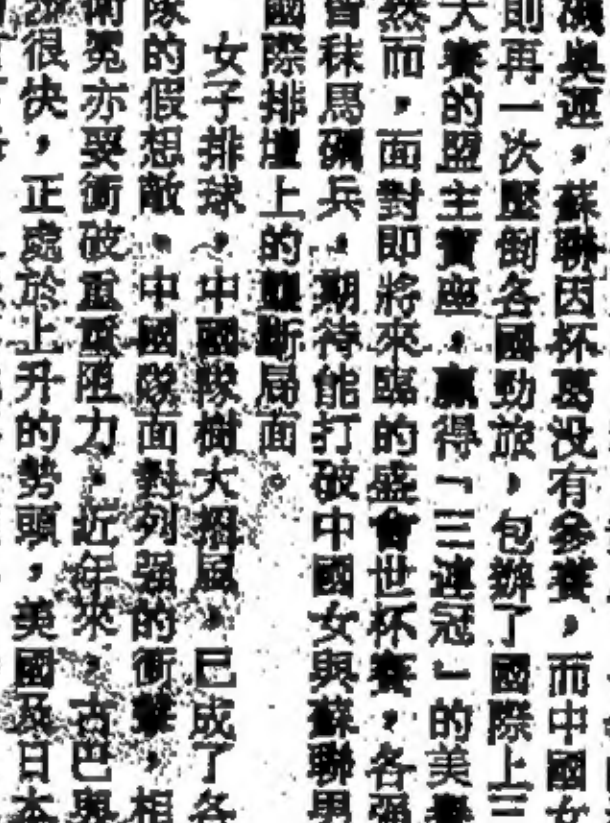 磯奧運，蘇聯因杯葛没有參賽，而中國女
則再一次壓倒各國勁旅，包辦了國際上三
大賽的盟主寶座，贏得「三連冠」的美譽
然而，面對即將來臨的盛會世杯賽，各强
皆秣馬礪兵，期待能打破中國女與蘇聯男
國際排壇上的壟斷局面。
女子排球，中國隊樹大招風，已成了各
隊的假想敵。中國隊面對列强的衝擊，相
衛冕亦要衝破重重阻力。近年來，古巴與
很快，正處於上升的勢頭，美國及日本